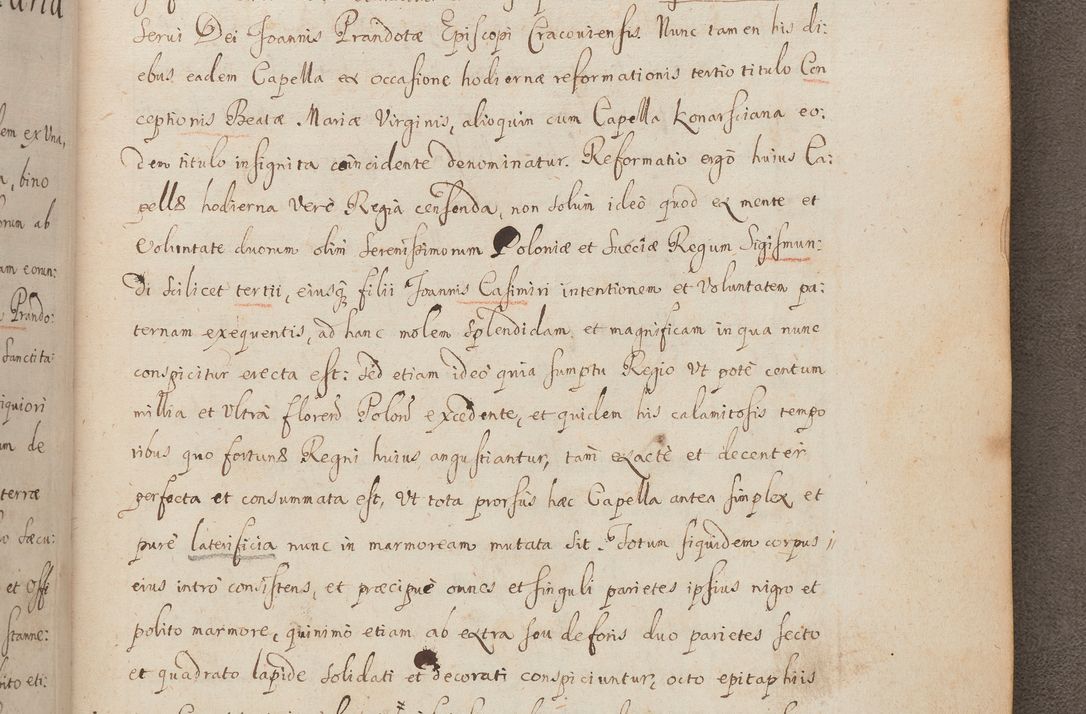 Serui Dei Joannis Prandotæ Episcopi Cracouiensis Nunc tamen his di:
ebus eadem Capella ex occasione hodiernæ reformationis tertio titulo Con
ceptionis Beatæ Mariæ Virginis, alioquin cum Capella Konarsciana eo:
dem titulo insignita coincidente denominatur. Reformatio ergò huius Ca:
pellæ hodierna verè Regia censenda, non solum ideò quod ex mente et
Voluntate duorum olim Serenissimorum Poloniæ et Sueciæ Regum Sigismun:
di scilicet tertii, eiusq3 filii Joannis Casimiri intentionem et voluntatem pa:
ternam exequentis, ad hanc molem splendidam et magnificam in qua nunc
conspicitur erecta est: Sed etiam ideò quia sumptu Regio ut potè centum
millia et ultrà floren Polon excedente, et quidem his calamitosis tempo
ribus quo fortunæ Regni huius angustiantur, tam exactè et decenter
perfecta et consummata est, ut tota prorsus hæc Capella antea simplex et
purè laterificia nunc in marmoream mutata sit. Totum siquidem corpus //
eius intrò consistens, et præcipuè omnes et singuli parietes ipsius nigro et
polito marmore, quinimò etiam ab extra seu deforis duo parietes secto
et quadrato lapide solidati et decorati conspiciuntur, octo epitaphiis
lem ex Una,
bino
orum ab
am eorun:
Prando:
Sanctita:
iquiori
um de
terræ
Sæcu:
et Offi
stanne:
rito eti: